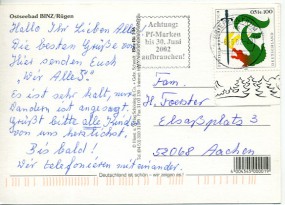 Ostseebad BINZ/Rügen
Hallo Ihr Lieben Alle
Die besten Grüße von
Hier senden Euch
"Wir Alle".
Es ist sehr kalt,
Wandern ist angesagt.
Grüßt bitte alle
von uns herzlichst.
Bis bald!
Wir telefonieren miteinander.
Achtung:
Pf-Marken
bis 30. Juni
2002
aufbrauchen!
100
DEUTSCHLAND
Fam.
H. Foerster
Elsaßplatz 3
52068 Aachen
Deutschland ist schön - wir zeigen es!